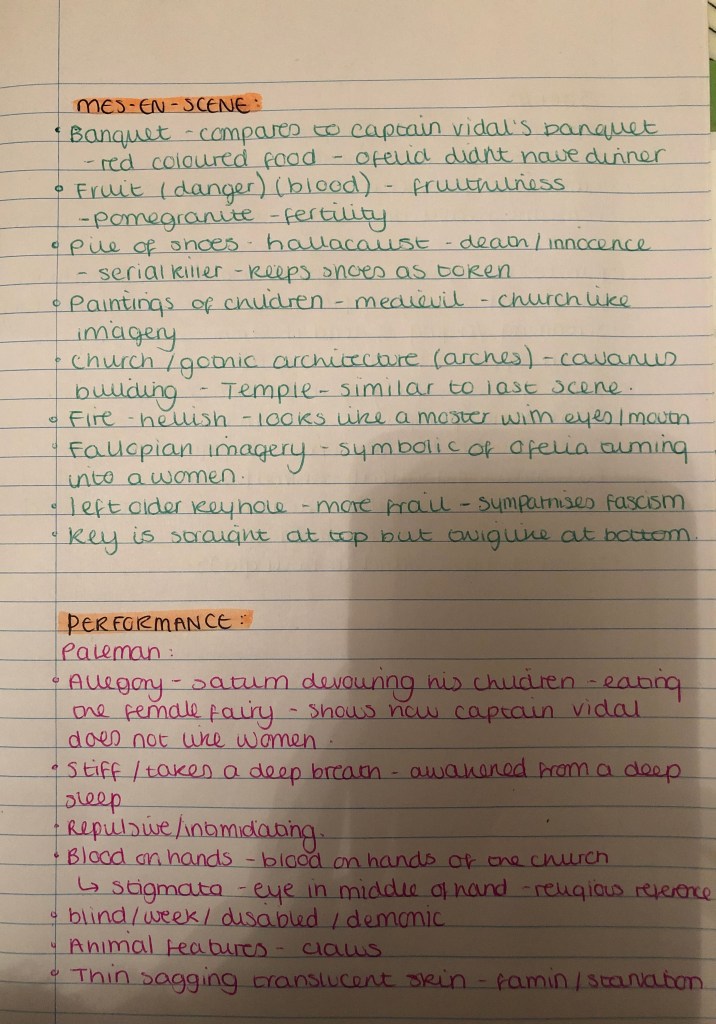 MES-EN-SCENE:
• Banquet - compares to captain vidal's banquet
- red coloured food - ofelia didnt have dinner
• Fruit (danger) (blood) - fruithfulness
- pomegranite - fertility
• Pile of shoes - hallacaust - death/innocence
- serial killer - keeps shoes as token
• Paintings of children - medievil - church like
imagery
• Church/gothic architecture (arches) - cavanus
building - Temple - similar to last scene.
• Fire - hellish - looks like a moster with eyes/mouth
• Fallopian imagery - symbolic of ofelia turning
into a women.
• left older keyhole - more frail - sympathises fascism
• Key is straight at top but twiglike at bottom.
PERFORMANCE:
Paleman:
• Allegory - saturn devouring his children - eating
the female fairy - shows how captain vidal
does not like women.
• Stiff/takes a deep breath - awakened from a deep
sleep
• Repulsive/intimidating.
• Blood on hands - blood on hands of the church
↳ stigmata - eye in middle of hand - religious reference
• blind/week/disabled/demonic
• Animal features - claws
• Thin sagging translucent skin - famin/starvation